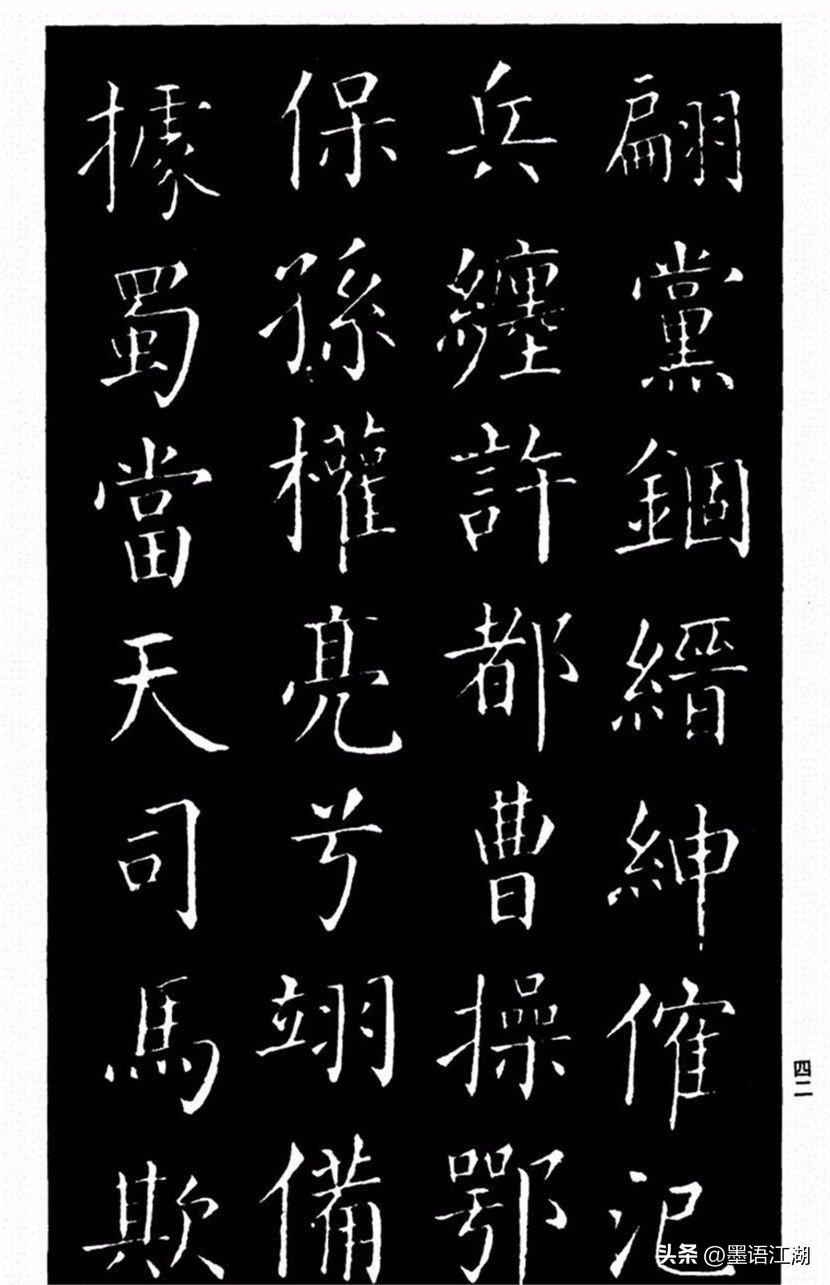 翩黨錮縉紳傕汜
兵纏許都曹操鄂
保孫權亮兮翊備
據蜀當天司馬欺
四二
头条 @墨语江湖